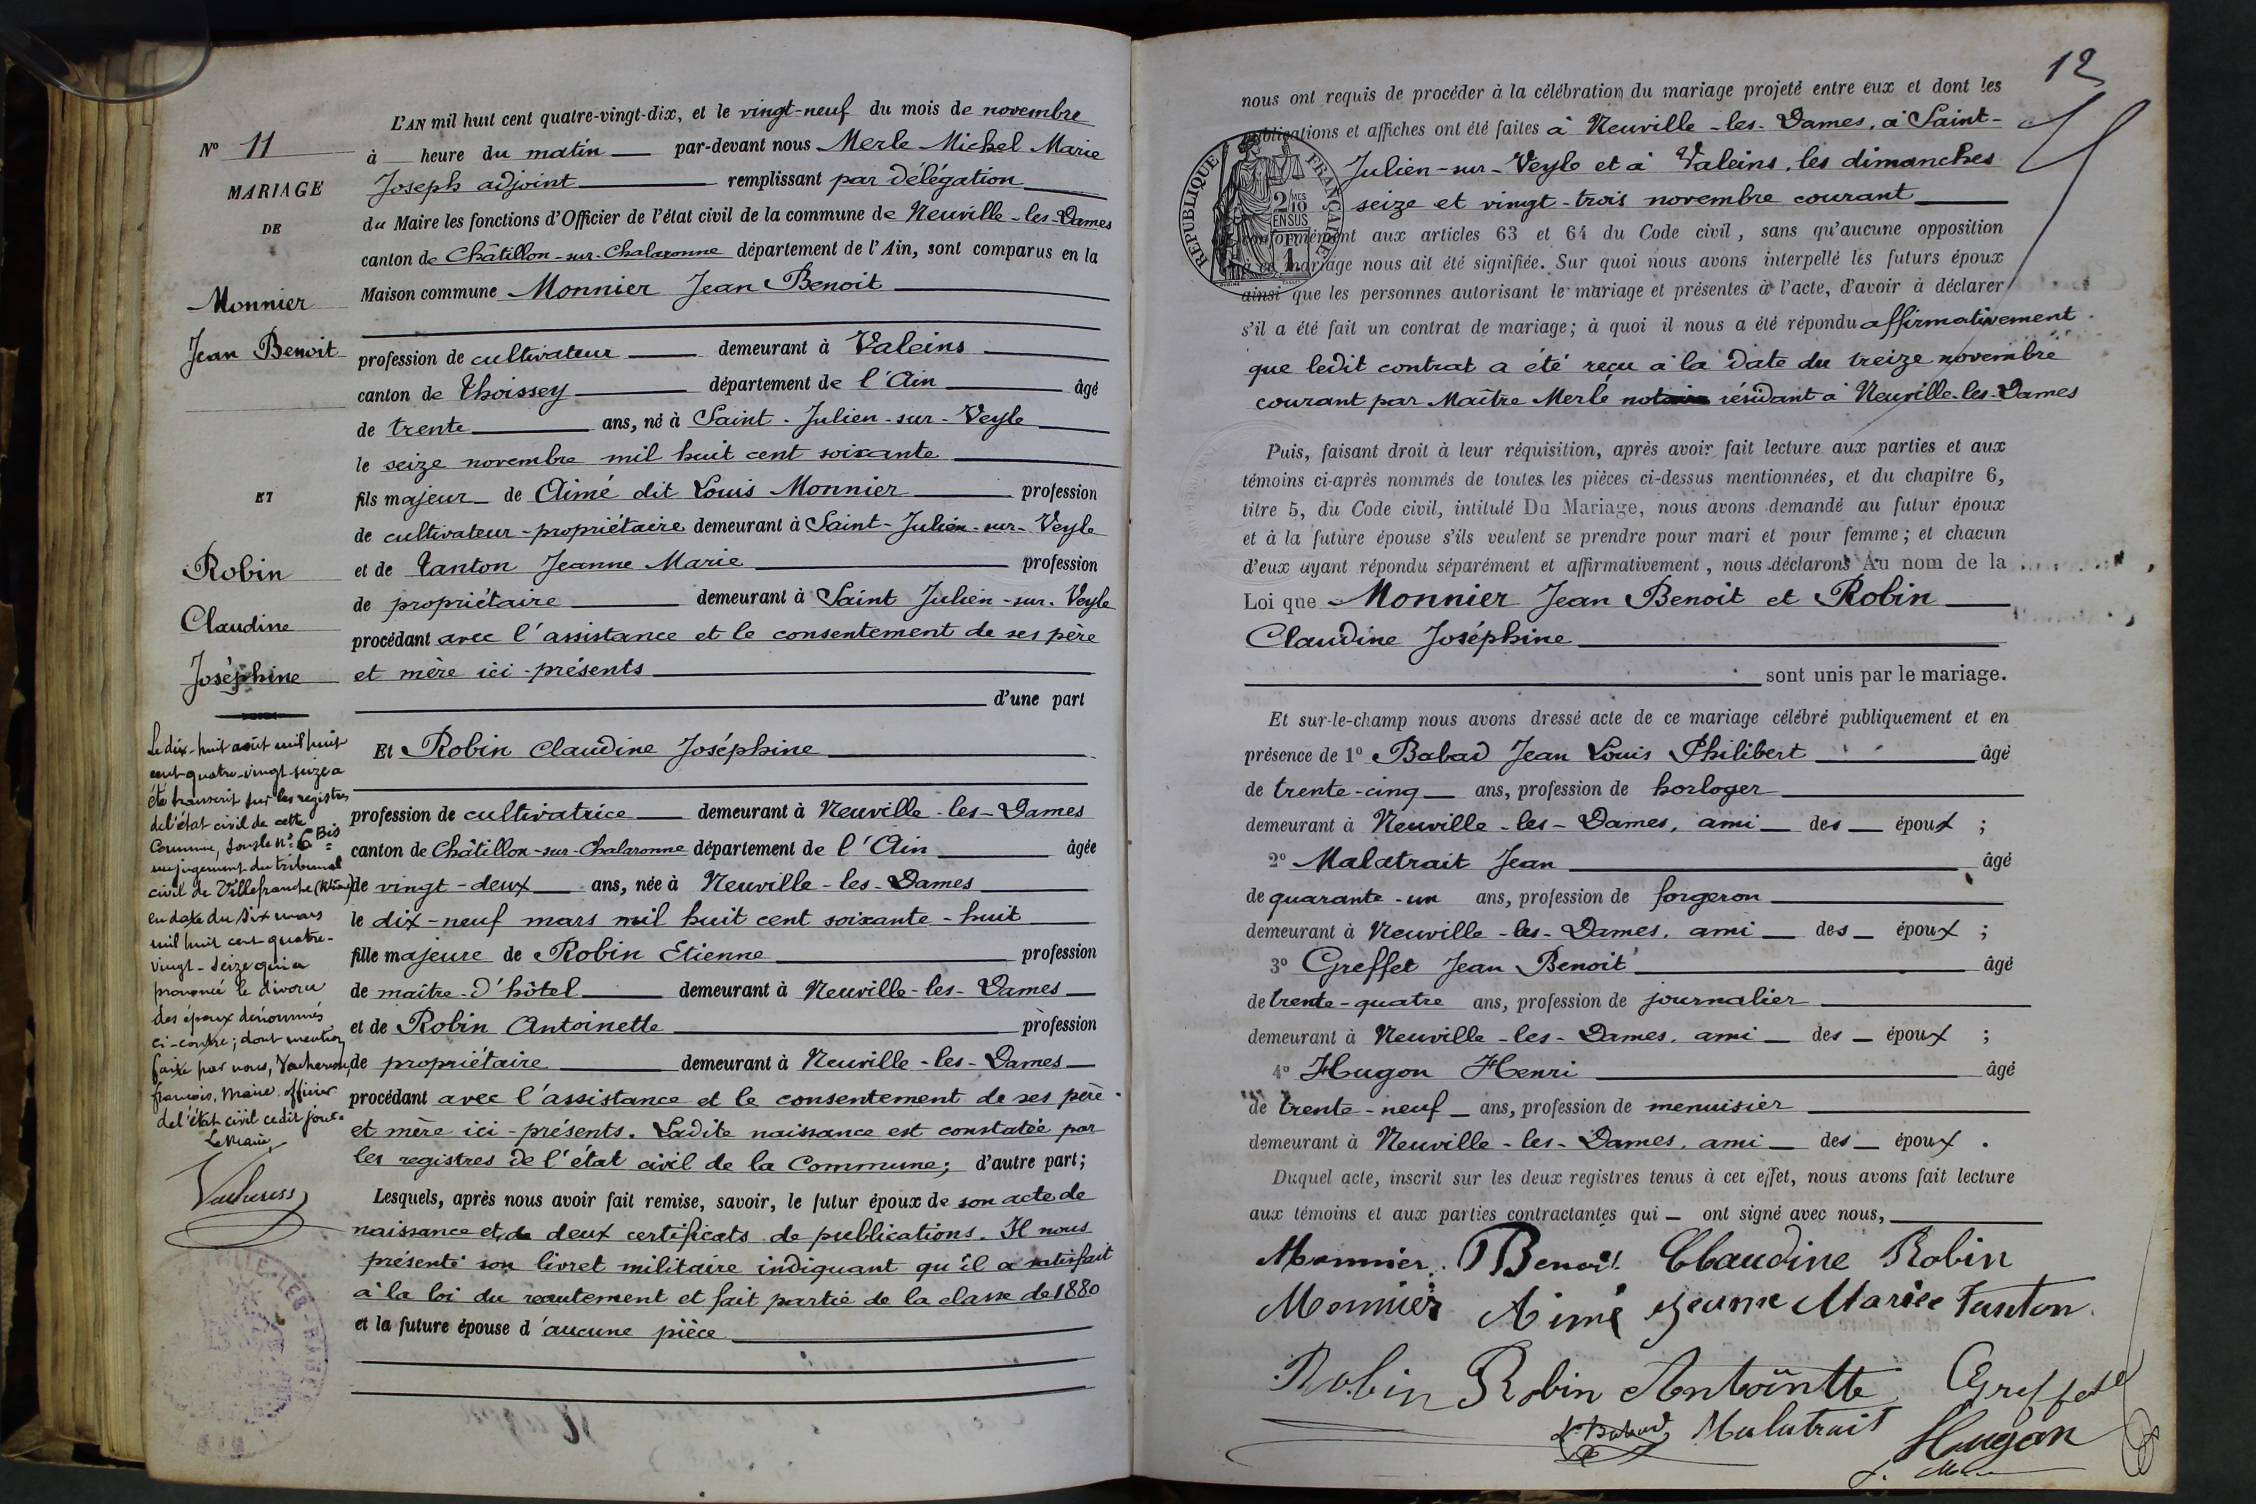 L'AN mil huit cent quatre-vingt-dix, et le vingt-neuf du mois de novembre
N° 11
à heure du matin par-devant nous Merle Michel Marie
MARIAGE
Joseph adjoint remplissant par délégation
DE
du Maire les fonctions d'Officier de l'état civil de la commune de Neuville-les-Dames
canton de Châtillon-sur-Chalaronne département de l'Ain, sont comparus en la
Monnier
Maison commune Monnier Jean Benoit
Jean Benoit
profession de cultivateur demeurant à Valeins
canton de Thoissey département de l'Ain âgé
de trente ans, né à Saint-Julien-sur-Veyle
le seize novembre mil huit cent soixante
ET
fils majeur de Aimé dit Louis Monnier profession
de cultivateur-propriétaire demeurant à Saint-Julien-sur-Veyle
Robin
et de Tanton Jeanne Marie profession
de propriétaire demeurant à Saint Julien-sur-Veyle
Claudine
procédant avec l'assistance et le consentement de ses père
Joséphine
et mère ici-présents
d'une part
Et Robin Claudine Joséphine
profession de cultivatrice demeurant à Neuville-les-Dames
canton de Châtillon-sur-Chalaronne département de l'Ain âgée
de vingt-deux ans, née à Neuville-les-Dames
le dix-neuf mars mil huit cent soixante-huit
fille majeure de Robin Etienne profession
de maître-d'hôtel demeurant à Neuville-les-Dames
et de Robin Antoinette profession
de propriétaire demeurant à Neuville-les-Dames
procédant avec l'assistance et le consentement de ses père
et mère ici-présents. Ladite naissance est constatée par
les registres de l'état civil de la Commune; d'autre part;
Lesquels, après nous avoir fait remise, savoir, le futur époux de son acte de
naissance et de deux certificats de publications. Il nous
présente son livret militaire indiquant qu'il a satisfait
à la loi du recrutement et fait partie de la classe de 1880
et la future épouse d'aucune pièce
Le dix-huit août mil huit
cent quatre-vingt-seize a
été transcrit sur les registres
de l'état civil de cette
Commune, sous le n° 6 Bis
un jugement du tribunal
civil de Villefranche (Rhône)
en date du six mars
mil huit cent quatre-
vingt-seize qui a
prononcé le divorce
des époux dénommés
ci-contre; dont mention
faite par nous, Vacheresse
françois, Maire officier
de l'état civil cedit jour.
Le Maire,
12
nous ont requis de procéder à la célébration du mariage projeté entre eux et dont les
publications et affiches ont été faites à Neuville-les-Dames, à Saint-
Julien-sur-Veyle et à Valeins, les dimanches
seize et vingt-trois novembre courant
conformément aux articles 63 et 64 du Code civil, sans qu'aucune opposition
à ce mariage nous ait été signifiée. Sur quoi nous avons interpellé les futurs époux
ainsi que les personnes autorisant le mariage et présentes à l'acte, d'avoir à déclarer
s'il a été fait un contrat de mariage; à quoi il nous a été répondu affirmativement.
que ledit contrat a été reçu à la date du treize novembre
courant par Maître Merle notaire résidant à Neuville-les-Dames
RÉPUBLIQUE FRANÇAISE
2/10 MES
EN SUS
1 F
Puis, faisant droit à leur réquisition, après avoir fait lecture aux parties et aux
témoins ci-après nommés de toutes les pièces ci-dessus mentionnées, et du chapitre 6,
titre 5, du Code civil, intitulé Du Mariage, nous avons demandé au futur époux
et à la future épouse s'ils veulent se prendre pour mari et pour femme; et chacun
d'eux ayant répondu séparément et affirmativement, nous déclarons Au nom de la
Loi que Monnier Jean Benoit et Robin
Claudine Joséphine
sont unis par le mariage.
Et sur-le-champ nous avons dressé acte de ce mariage célébré publiquement et en
présence de 1° Babad Jean Louis Philibert âgé
de trente-cinq ans, profession de horloger
demeurant à Neuville-les-Dames, ami des époux ;
2° Malatrait Jean âgé
de quarante-un ans, profession de forgeron
demeurant à Neuville-les-Dames, ami des époux ;
3° Greffet Jean Benoit âgé
de trente-quatre ans, profession de journalier
demeurant à Neuville-les-Dames, ami des époux ;
4° Hugon Henri âgé
de trente-neuf ans, profession de menuisier
demeurant à Neuville-les-Dames, ami des époux .
Duquel acte, inscrit sur les deux registres tenus à cet effet, nous avons fait lecture
aux témoins et aux parties contractantes qui ont signé avec nous,
Monnier Benoit Claudine Robin
Monnier Aimé Jeanne Mariee Tanton
Robin Robin Antointte Greffet
Babad Malatrait Hugon